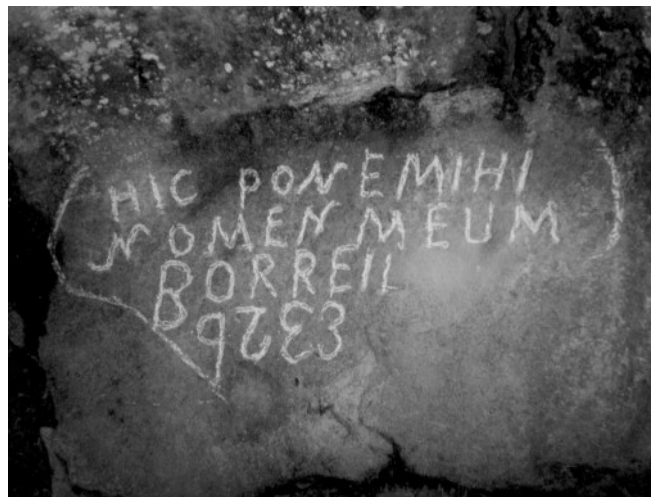 HIC PONE MIHI
NOMEN MEUM
BORREIL